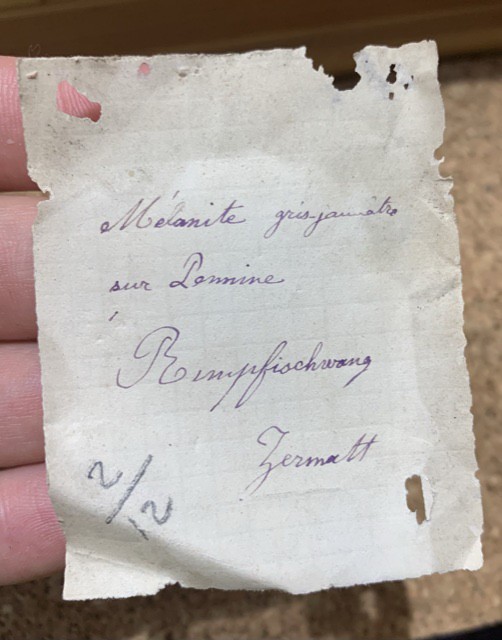 Mélanite gris jaunâtre
sur Pennine
Rimpfischwang
Zermatt
2/12